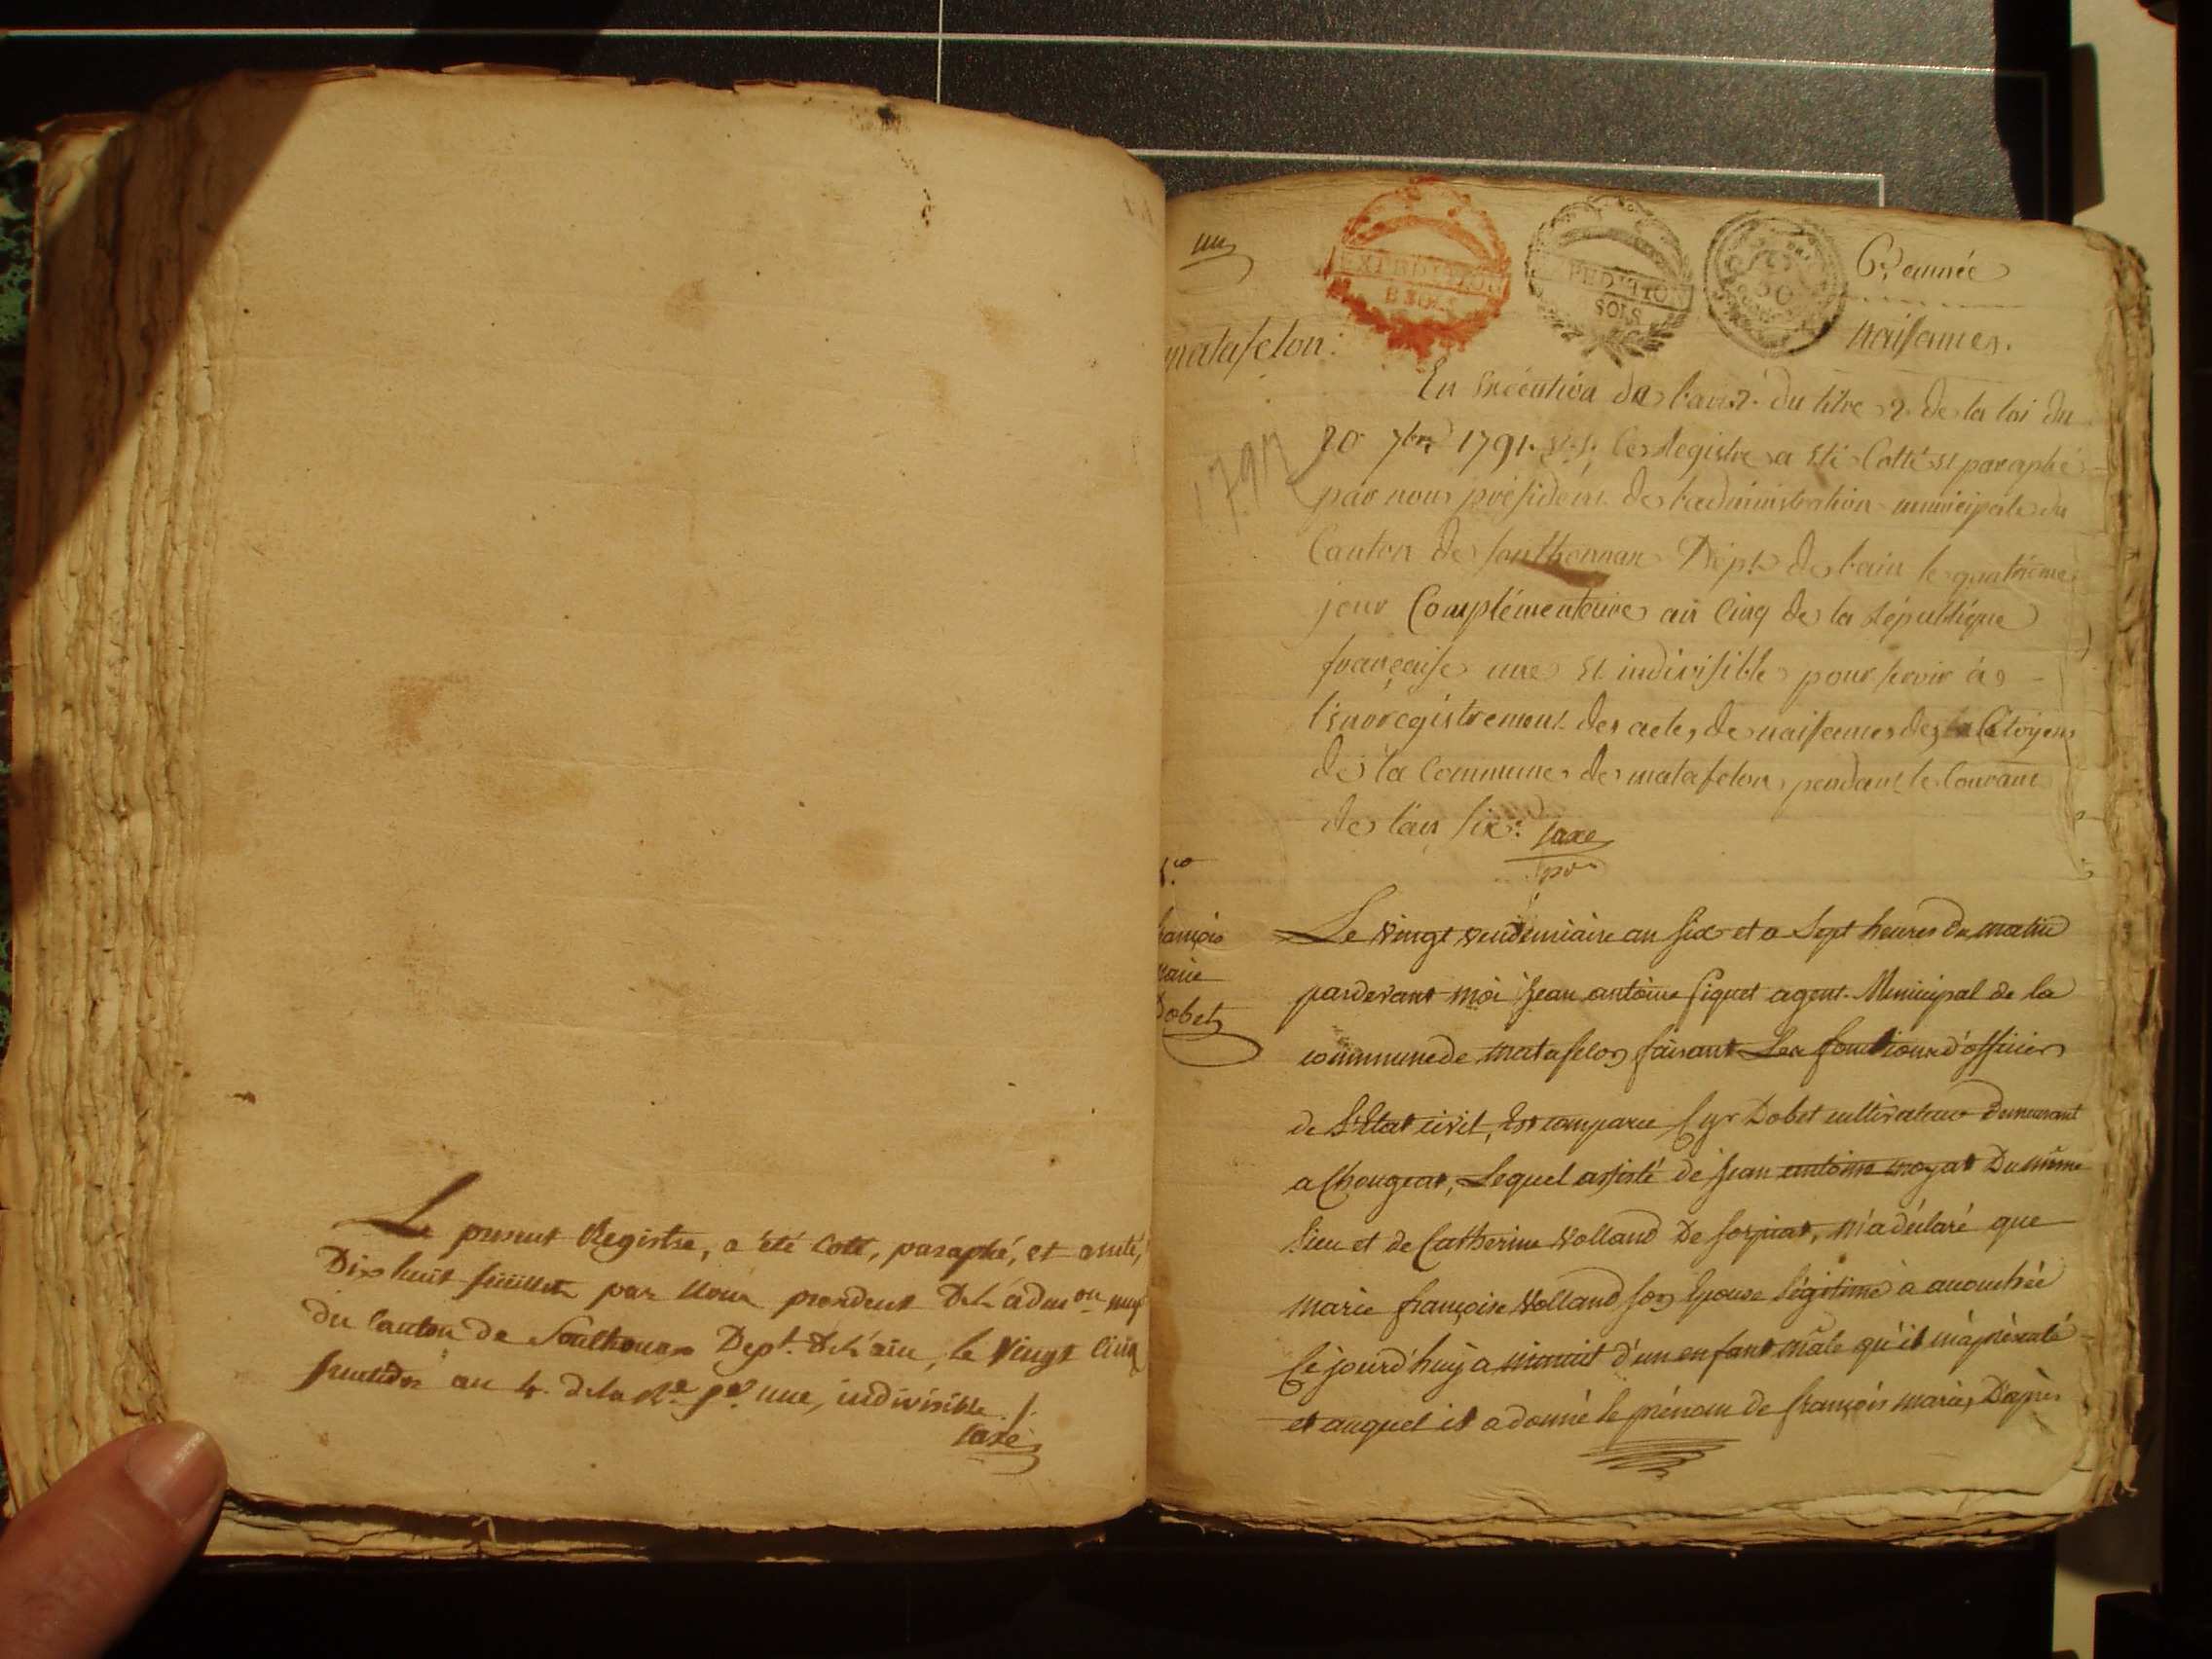 Le present Registre, a été Cotté, paraphé, et arreté,
Dix huit feuillets par Nous president De L'adm.on mup.
du Canton de Sonthonax Dep.t De L'ain, le Vingt Cinq
fructidor an 4. de la R.e f.se une, indivisible ./.
Saxe
un
6.e année
Naissances.
matafelon:
1797
En Exécution de l'art. 2. du titre 2. de la loi du
20 7bre 1791. Le Registre a été Cotté et paraphé
par nous président de l'administration municipale du
Canton de sonthonnax Dépt. de l'ain le quatrième
jour Complémentaire an Cinq de la République
française une et indivisible pour servir à
l'enregistrement des actes de naissances des Citoyens
de la Commune de matafelon pendant le Courant
de l'an six. Saxe
pdt
1.er
françois
marie
Dobet
Le vingt vendemiaire an six et a Sept heures du matin
pardevant moi Jean antoine figuet agent Municipal de la
commune de matafelon faisant Les fonctions d'officier
de L'Etat civil, Est comparu Cyr Dobet cultivateur demeurant
a Chougeat, Lequel assisté de Jean antoine moyat Du même
lieu et de Catherine Volland De Corpiat, m'a déclaré que
marie françoise Volland son Epouse légitime à accouchée
Ce jourd'huy a minuit d'un enfant mâle qu'il m'a présenté
et auquel il a donné le prénom de françois marie, D'après
EXPEDITION
8 SOLS
EXPEDITION
SOLS
50